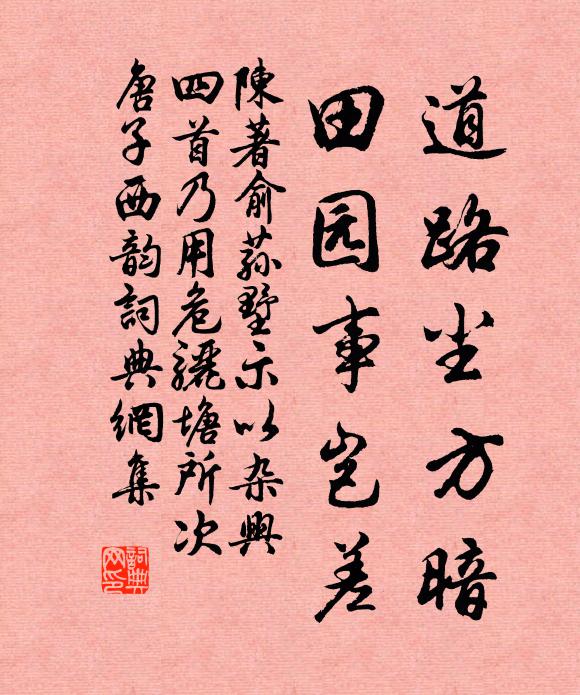 道路尘方暗
田园事岂差
陳著俞荪墅示以杂興
四首乃用危驪塘所次
唐子西韵詞典網集
詞典网印